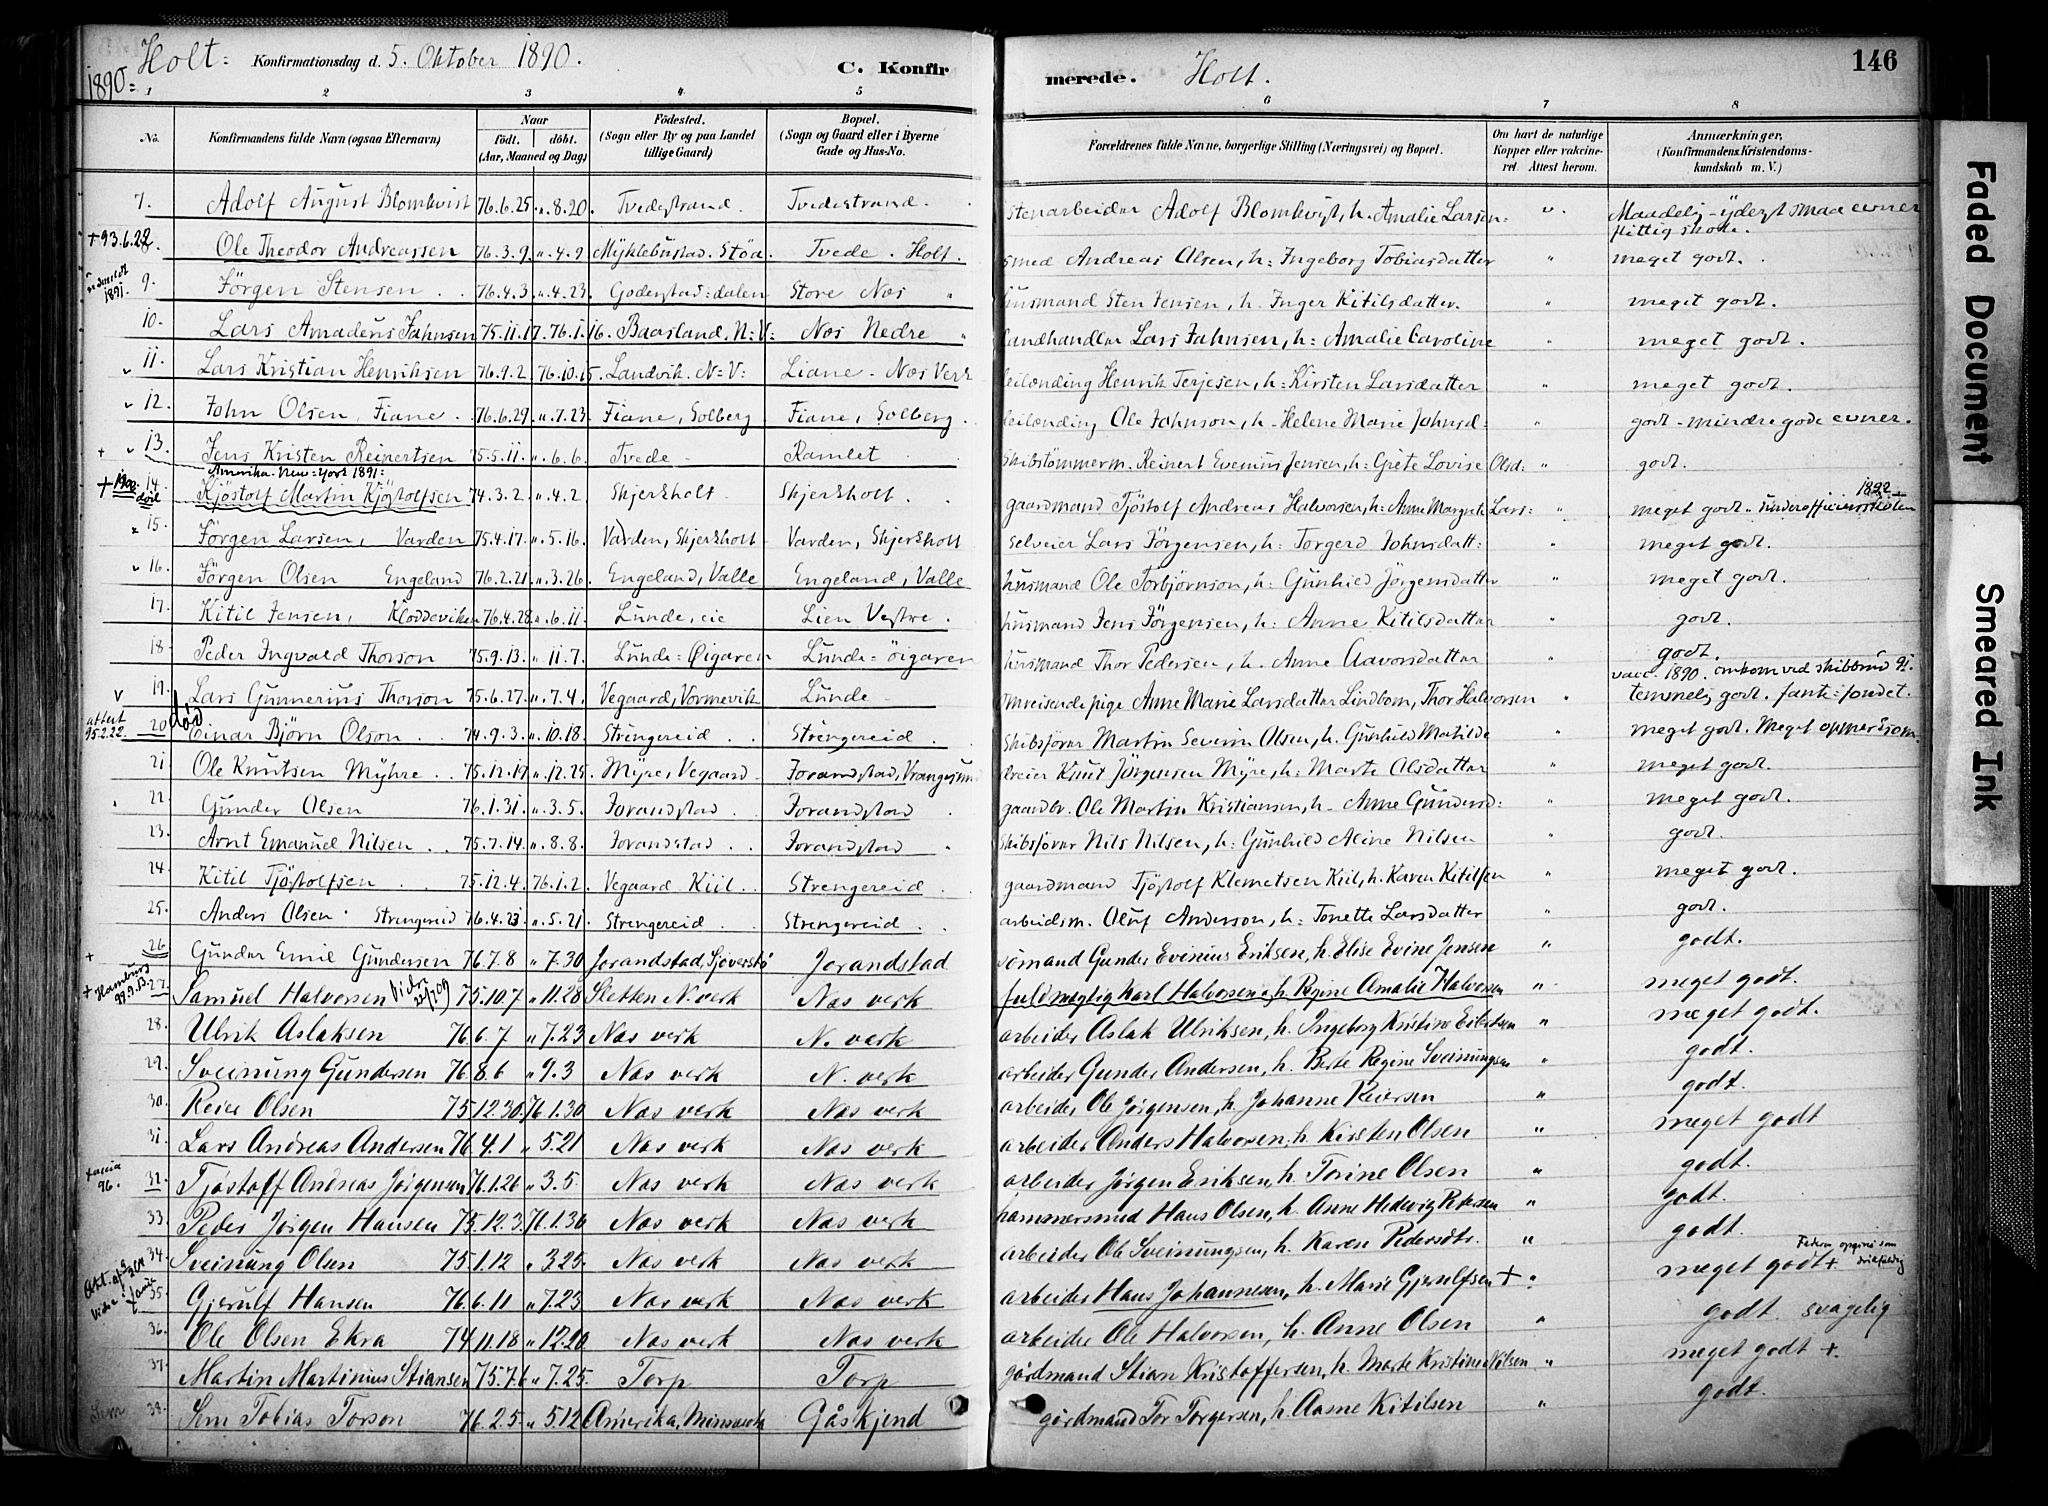 1890= Holt= Konfirmationsdag d. 5. Oktober 1890. C. Konfirmerede. Holt. 146
1 2 3 4 5 6 7 8
No. Konfirmandens fulde Navn (ogsaa Efternavn) Naar født, døbt. (Aar, Maaned og Dag) Fødested. (Sogn eller By og paa Landet tillige Gaard) Bopæl. (Sogn og Gaard eller i Byerne Gade og Hus-No. Forældrenes fulde Navne, borgerlige Stilling (Næringsvei) og Bopæl. Om havt de naturlige Kopper eller vaccineret. Attest herom. Anmærkninger. (Konfirmandens Kristendomskundskab m. V.)
7. Adolf August Blomkvist 76.6.25 „ 8.20. Tvedestrand. Tvedestrand. Stenarbeider Adolf Blomkvist, h. Amalie Larsen= „ Maadelig - yderst smaa evner flittig skole.
+93.6.22 8. Ole Theodor Andreassen 76.3.9 „ 4.9 Myklebustad. Støa. Tvede. Holt. smed Andreas Olsen, h: Ingeborg Tobiasdatter „ meget godt.
1891. 9. Jörgen Stensen 76.4.3 „ 4.23. Goderstad=dalen Store Nes „ husmand Sten Jensen, h. Inger Kitilsdatter. „ meget godt.
10. Lars Amadeus Jahnsen 75.11.17. 76.1.16. Baasland, N=V= Nes Nedre „ landhandler Lars Jahnsen, h: Amalie Caroline „ meget godt.
11. Lars Kristian Henriksen 76.9.2 76.10.15. Landvik. N=V: Liane - Nes Verk leilending Henrik Terjesen, h: Kirsten Larsdatter „ meget godt.
12. John Olsen, Fiane 76.6.29 „ 7.23. Fiane, Solberg Fiane, Solberg. leilending Ole Johnson, h. Helene Marie Johnsd: „ godt - mindre gode evner.
+ 13. Jens Kristen Reinertsen 75.5.11. „ 6.6. Tvede Ramlet skibstömmerm. Reinert Evenius Jensen, h: Grete Lovise Olsd: „ godt.
Amerika. New=York 1891:
+ 1900 død 14. Kjöstolf Martin Kjöstolfsen 74.3.2. „ 4.2. Skjerkholt Skjerkholt gaardmand Tjöstolf Andreas Halvorsen, h: Anne Margrete Lars: „ meget godt. underofficiersskolen 1892
15. Jörgen Larsen, Varden 75.4.17. „ 5.16. Varden, Skjerkholt Varden, Skjerkholt selveier Lars Jörgensen, h: Torgerd Johnsdatt: „ meget godt.
16. Jörgen Olsen Engeland 76.2.21 „ 3.26. Engeland, Valle Engeland, Valle husmand Ole Torbjörnson, h: Gunhild Jörgensdatter „ meget godt.
17. Kitil Jensen, Kloddeviken 76.4.28 „ 6.11. Lunde, eie Lien Vestre. husmand Jens Jörgensen, h: Anne Kitilsdatter „ godt.
18. Peder Ingvald Thorson 75.9.13. „ 11.7. Lunde=Øigaren Lunde=öigaren husmand Thor Pedersen, h. Anne Aavorsdatter „ godt.
vacc. 1890. omkom ved skibbrud 91.
19. Lars Gunnerius Thorson 75.6.27. „ 7.4. Vegaard, Vormevik Lunde omreisende pige Anne Marie Larsdatter Lindbom, Thor Halvorsen „ temmelig godt. fante=fondet.
attest 95.2.22. 20. død Einar Björn Olson 74.9.3. „ 10.18. Strengereid Strengereid skibsförer Martin Severin Olsen, h. Gunhild Matilde „ meget godt. Meget opmerksom.
21. Ole Knutsen Myhre 75.12.19 „ 12.25. Myre, Vegaard Jorandstad, Vrangesund eier Knut Jörgensen Myre, h: Marte Olsdatter „ meget godt.
22. Gunder Olsen 76.1.31. „ 3.5. Jorandstad Jorandstad gaardbr. Ole Martin Kristiansen, h. Anne Gundersd: „ meget godt.
23. Arnt Emanuel Nilsen 75.7.14. „ 8.8. Jorandstad Jorandstad „ skibsförer Nils Nilsen, h: Gunhild Aline Nilsen „ godt.
24. Kitil Tjöstolfsen 75.12.4. 76.1.2. Vegaard Kiil Strengereid gaardmand Tjöstolf Klemetsen Kiil, h. Karen Kitilsen „ meget godt.
25. Anders Olsen Strengereid 76.4.23 „ 5.21. Strengereid Strengereid arbeidsm. Oluf Anderson, h: Tonette Larsdatter „ godt.
+ 26 Gunder Emil Gundersen 76.7.8 „ 7.30 Jorandstad, Sjöverstø Jorandstad sömand Gunder Evinius Eriksen, h. Elise Evine Jensen „ godt.
+ Hamburg 99.9.13. 27. Samuel Halvorsen 75.10.7 „ 11.28 Sletten N. verk Næs verk fuldmægtig Karl Halvorsen, h. Regine Amalie Halvorsen „ meget godt.
28. Ulrik Aslaksen 76.6.7 „ 7.23 Næs verk N. verk arbeider Aslak Ulriksen, h. Ingeborg Kristine Eilertsen „ meget godt.
29. Sveinung Gundersen 76.8.6 „ 9.3 Næs verk N. verk arbeider Gunder Andersen, h. Berte Regine Sveinungsen „ godt.
30. Reier Olsen 75.12.30. 76.1.30 Næs verk Næs verk arbeider Ole Jörgensen, h. Johanne Reiersen „ godt.
31. Lars Andreas Andersen 76.4.1 „ 5.21 Næs verk Næs verk arbeider Anders Halvorsen, h. Kirsten Olsen „ meget godt
96. 32. Tjöstolf Andreas Jörgensen 76.1.26 „ 3.5. Næs verk Næs verk arbeider Jörgen Eriksen, h. Torine Olsen „ godt.
33. Peder Jörgen Hansen 75.12.3. 76.1.30 Næs verk Næs verk hammersmed Hans Olsen, h. Anne Hedevig Petersen „ godt.
34. Sveinung Olsen 75.1.12 „ 3.25. Næs verk Næs verk arbeider Ole Sveinungsen, h. Karen Pedersdtr. „ godt.
35. Gjerulf Hansen 76.6.11 „ 7.23 Næs verk Næs verk arbeider Hans Johannesen, h. Marie Gjerulfsen + „ meget godt +
36. Ole Olsen Ekra 74.11.18 „ 12.20 Næs verk Næs verk arbeider Ole Halvorsen, h. Anne Olsen „ godt. svagelig
37. Martin Martinius Stiansen 75.7.6 „ 7.25. Torp Torp gårdmand Stian Kristoffersen, h. Marte Kristine Nilsen „ meget godt +.
Sem 38. Sem Tobias Torson 76.2.5. „ 5.12 Amerika, Minnesota Gåskjend gårdmand Tor Torgersen, h. Aasne Kitilsen „ godt.
Faded Document
Smeared Ink